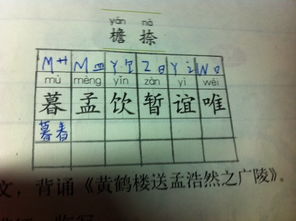 yán nà
檐 捺
M 艹 M 皿 Y 饣 Z 日 Y 讠 N 口
mù mèng yǐn zàn yì wéi
暮 孟 饮 暂 谊 唯
暮春
文，背诵《黄鹤楼送孟浩然之广陵》。